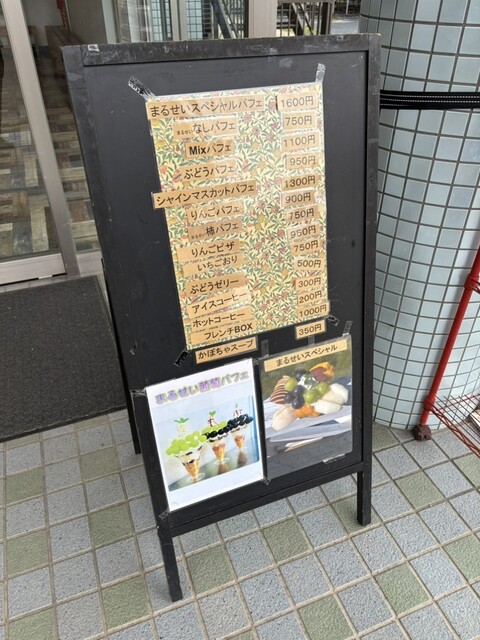 まるせいスペシャルパフェ 1600円
まるせいなしパフェ 750円
Mixパフェ 1100円
ぶどうパフェ 950円
シャインマスカットパフェ 1300円
りんごパフェ 900円
まるせい柿パフェ 750円
りんごピザ 950円
いちごおり 750円
ぶどうゼリー 500円
アイスコーヒー 300円
ホットコーヒー 200円
フレンチBOX 1000円
かぼちゃスープ 350円
まるせい葡萄パフェ
まるせいスペシャル